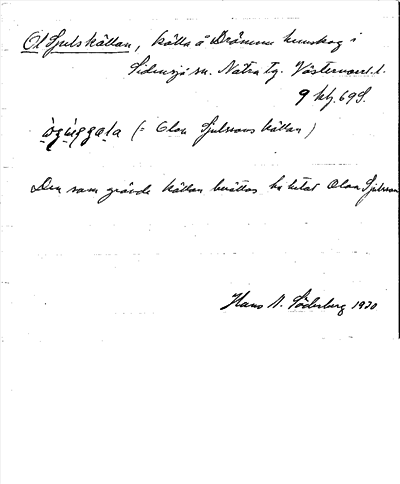 Ol Sjulskällan, källa å Drömme hemskog i
Sidensjö sn. Nätra tg. Västernorrl. l.
9 kbl. 69 S.
(= Olov Sjulssons källan)
Den som grävde källan berättas ha hetat Olov Sjulsson
Hans A. Söderberg 1920